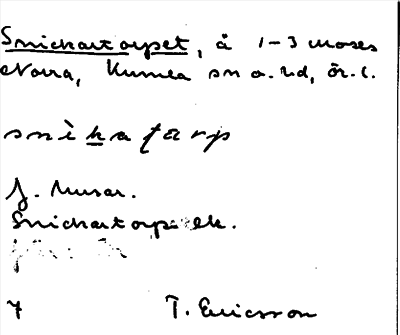 Snickartorpet, å 1-3 moses
Norra, Kumla sn o. hd, Ör. l.
snìkatàrp
f. Musar.
Snickartorp ek.
7 T. Ericsson